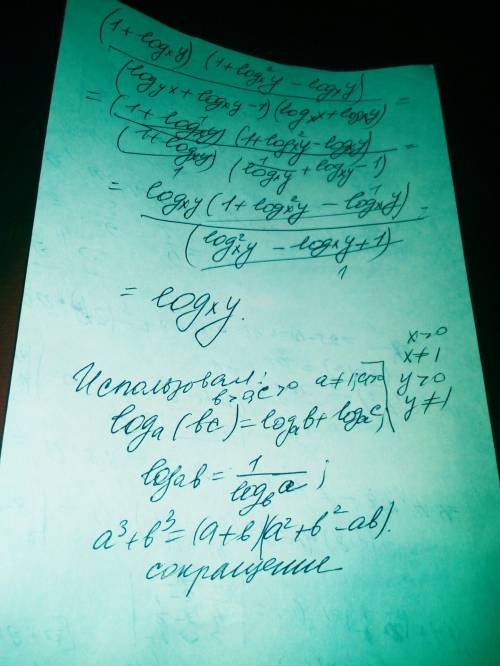 (1 + logₓy) (1 + logₓ²y − logₓy)
(log_y x + logₓy − 1) (logₓx + logₓy) =
= (1 + logₓy) (1 + logₓ²y − logₓy)
(1 + logₓy) (1/logₓy + logₓy − 1) =
= logₓy (1 + logₓ²y − logₓy)
(logₓ²y − logₓy + 1) =
= logₓy.
x>0
x≠1
y>0
y≠1
Использовал:
logₐ(bc) = logₐb + logₐc;
logₐb = 1/log_b a;
a³ + b³ = (a + b)(a² + b² − ab).
сокращение